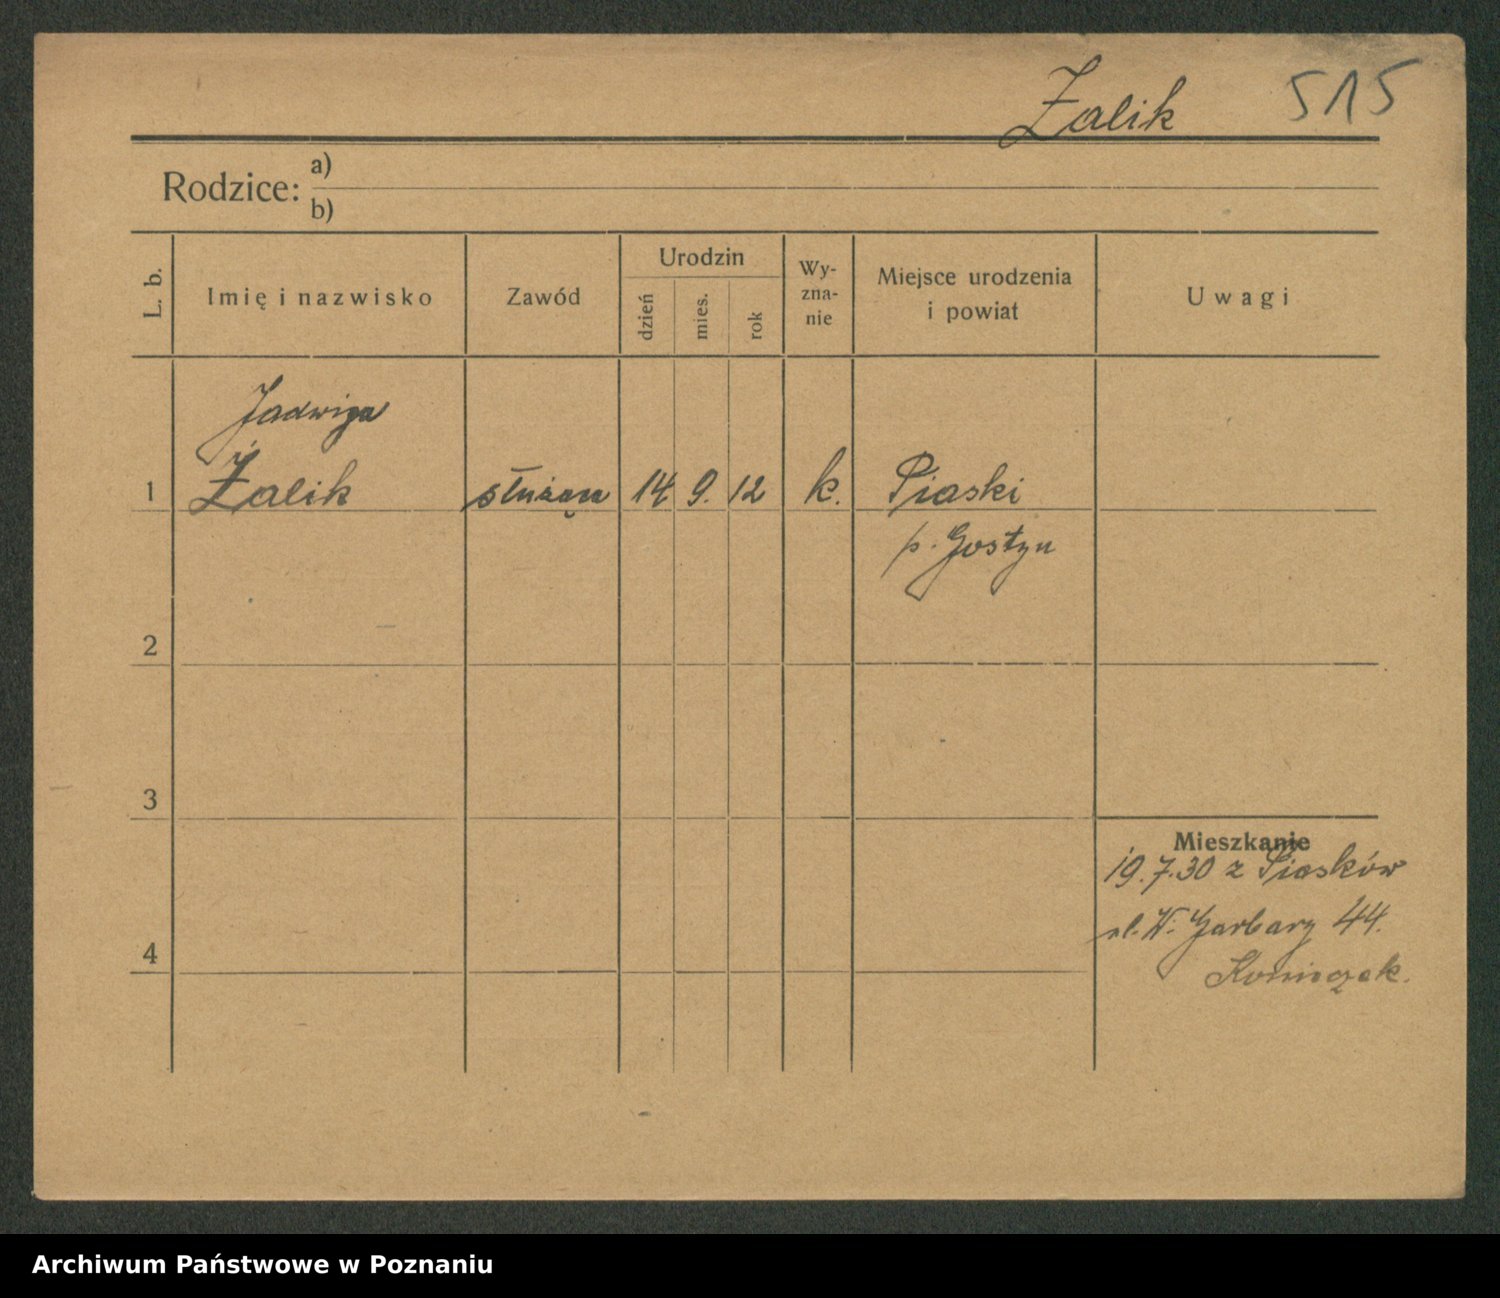 Żalik 515
Rodzice:
a)
b)
L. b.
Imię i nazwisko
Zawód
Urodzin
dzień
mies.
rok
Wy-
zna-
nie
Miejsce urodzenia
i powiat
Uwagi
Jadwiga
1 Żalik służąca 14 9. 12 k. Piaski
p. Gostyn
2
3
Mieszkanie
19.7.30 z Piasków
ul. W. Garbary 44.
4
Konieczek.
Archiwum Państwowe w Poznaniu